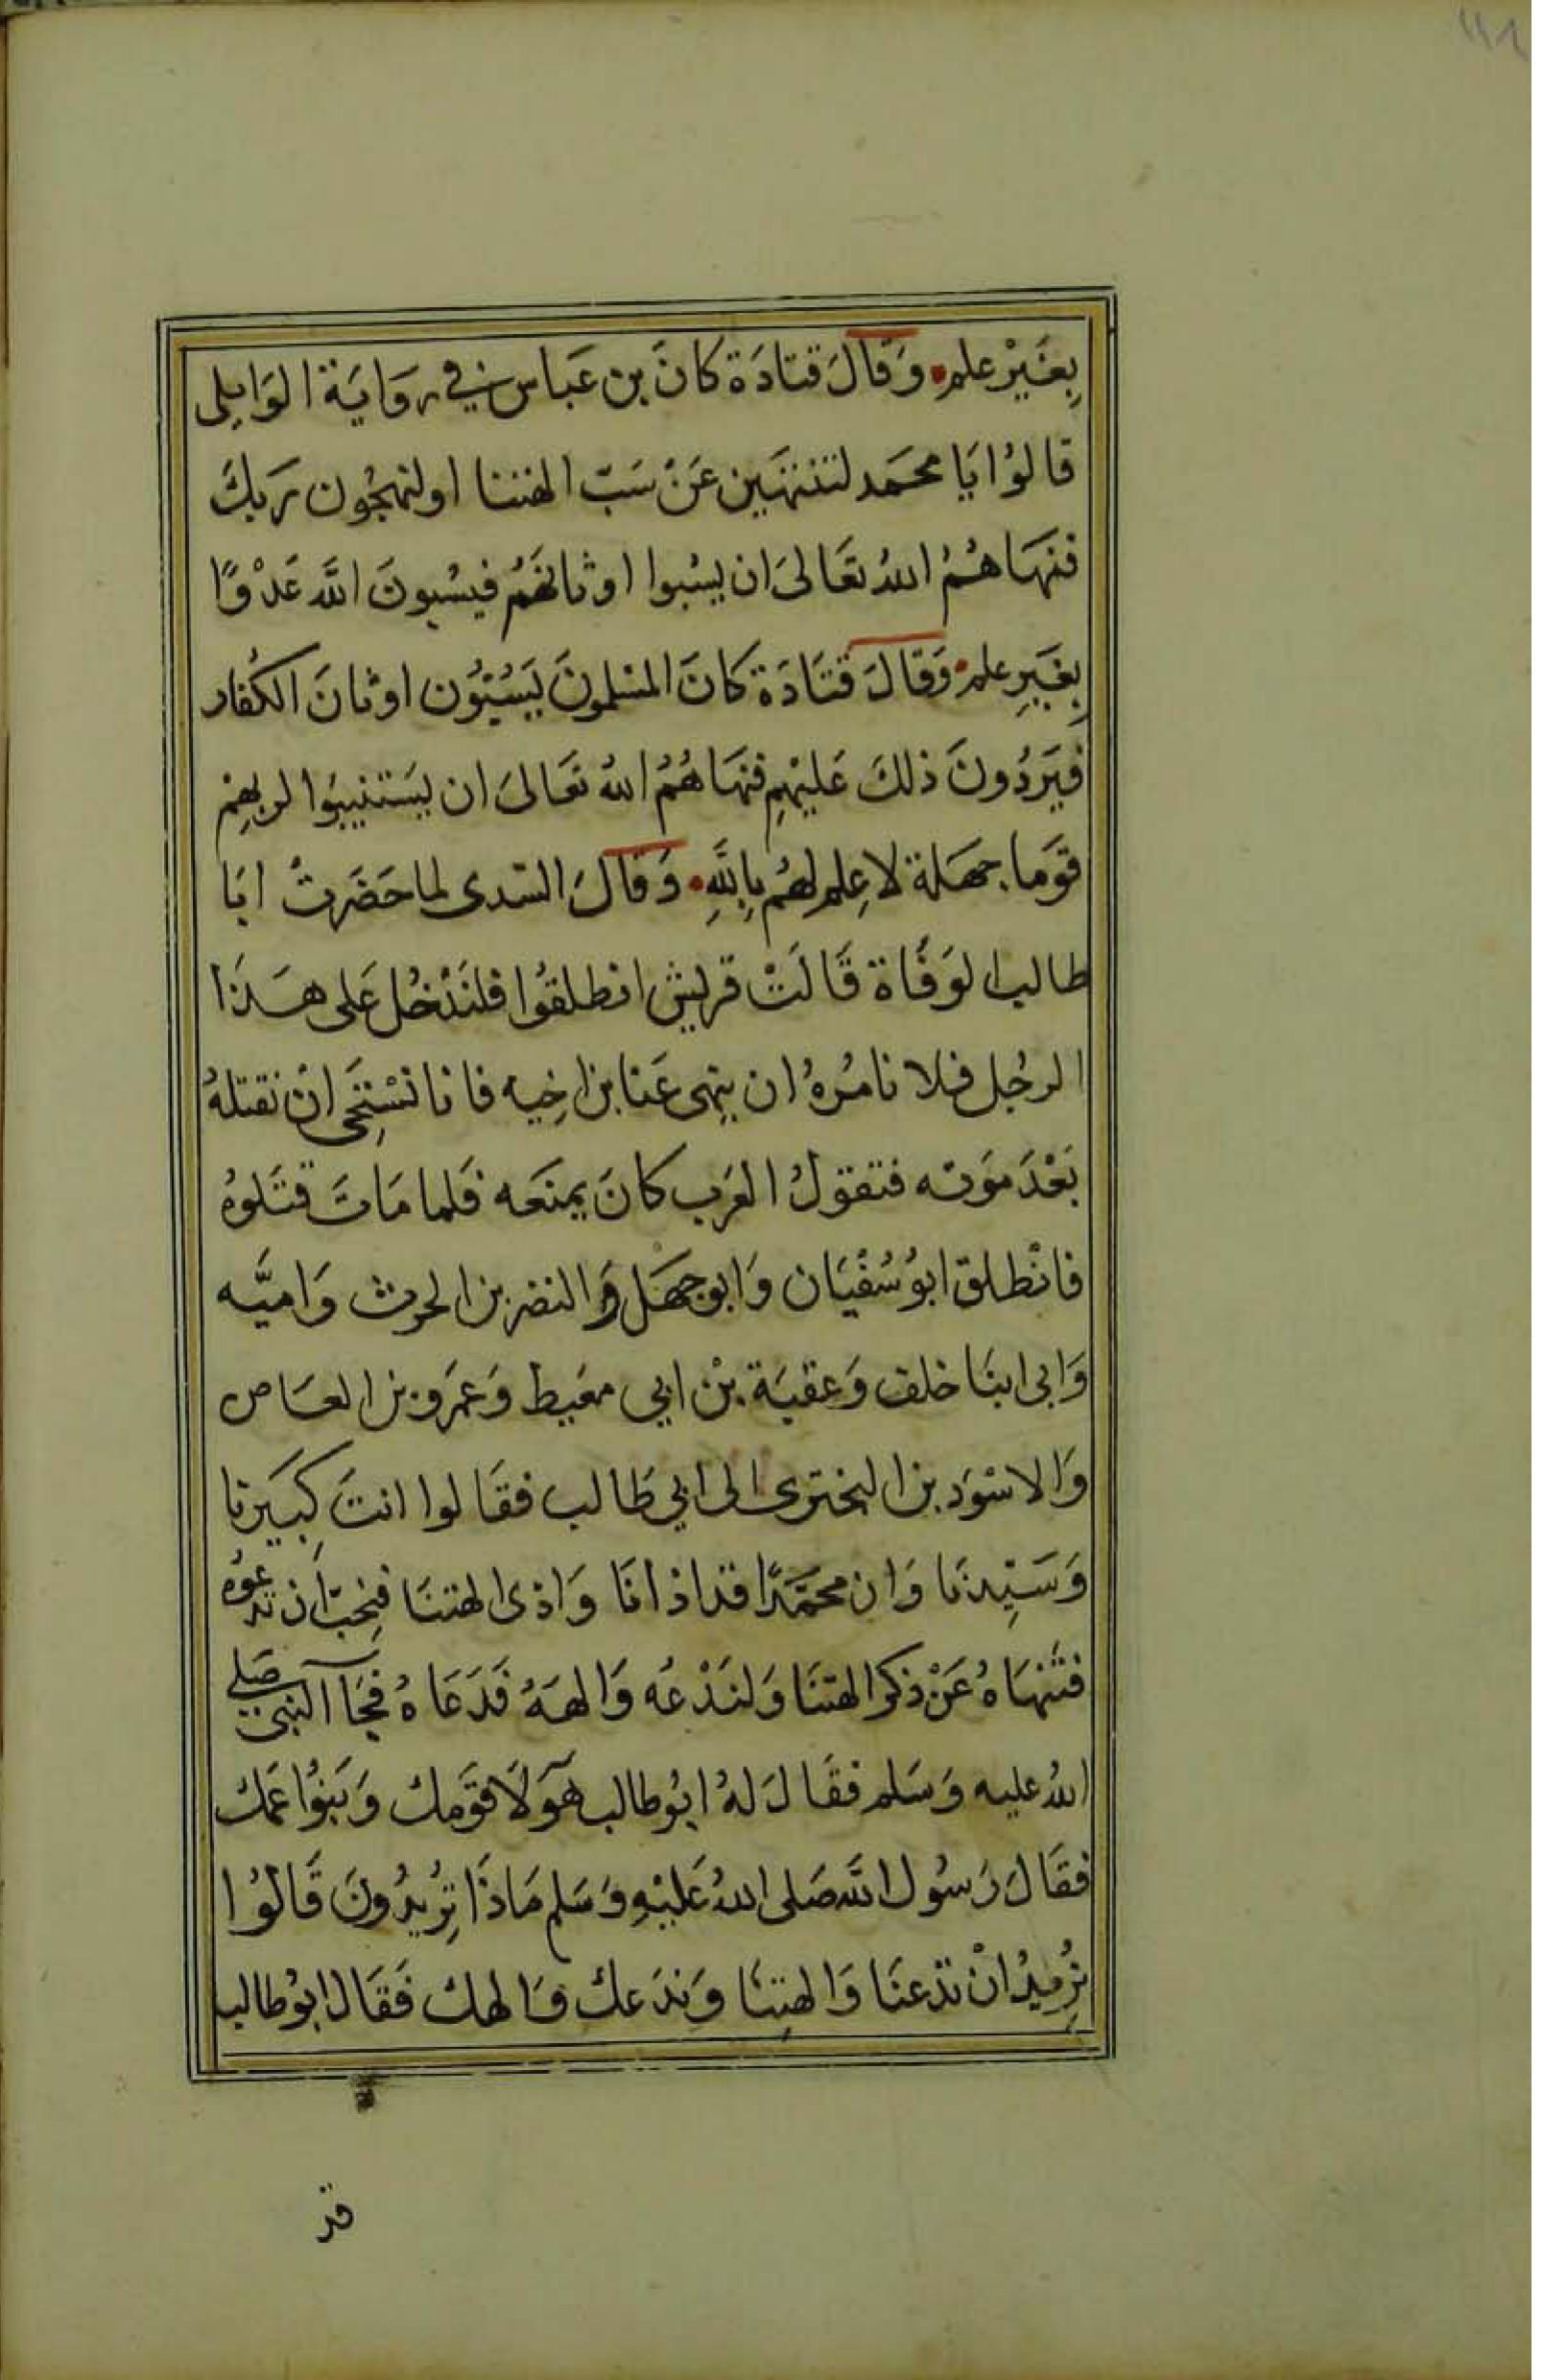 ١١٨
بِغَيْرِ علم وَقَالَ قتادَة كانَ بن عَباس في روَايَة الوَايلى
قالوُا يَا محمَد لتنتهَين عَنْ سَبّ الهتنا اولنهجُون رَبكَ
فنهَاهُمُ اللهُ تعَالىَ ان يسُبوا اوثانهَمُ فيسُبونَ اللَّه عَدْوًا
بِغَيرِ علم وَقالَ قتَادَة كانَ المسْلمونَ يَسُبُّوُن اوثانَ الكُفار
فيَردُونَ ذلكَ عَليْهِم فنهَاهُمُ اللهُ تعَالىَ ان يَستنيبوُا لربهِمْ
قوَما جهَلة لاعِلم لهُم بِاللَّهِ وَقالَ السّدى لما حَضَرتْ ابَا
طالب الوَفَاة قَالَتْ قريش انطلقوُا فلنَدْخُل عَلى هذَا
الرجُل فلا نامُرهُ ان ينهى عَنا بن اخِيه فانا نسْتِحَى انْ نقتلهُ
بَعْدَ مَوته فتقولُ العَرب كانَ يمنعَه فَلما مَاتَ قتَلوهُ
فانْطلق ابوُ سُفْيَان وَابوجهَل وَالنضر بن الحرث وَاميَّه
وَابى ابنَا خلف وَعقبَة بْن ابي معَيط وَعمَرو بن العَاص
وَالاسْوَد بن البخترى الى ابي طَالب فقَالوا انتَ كبَيِرنا
وَسَيّدنا وَان محمَّدًا قد اذانَا وَاذى الهتنَا فنِحبّ ان تدعوُه
فتَنْهَاهُ عَنْ ذكر الهتنَا وَلنَدْعُه وَالههُ فَدَعَاهُ فجَآ النبي صَلى
اللهُ عليه وَسَلم فقَالَ لهُ ابوُ طالب هَؤلَآ قوَمك وَبَنوُا عمَك
فقَالَ رَسوُل اللَّه صَلى اللهُ عَليْهِ وَسَلم مَاذَا تِرُيدُونَ قَالوُا
نرُيدُ انْ تدعنَا وَالهتِنَا وَندَعك وَالهك فَقَال ابوُ طالب
قد